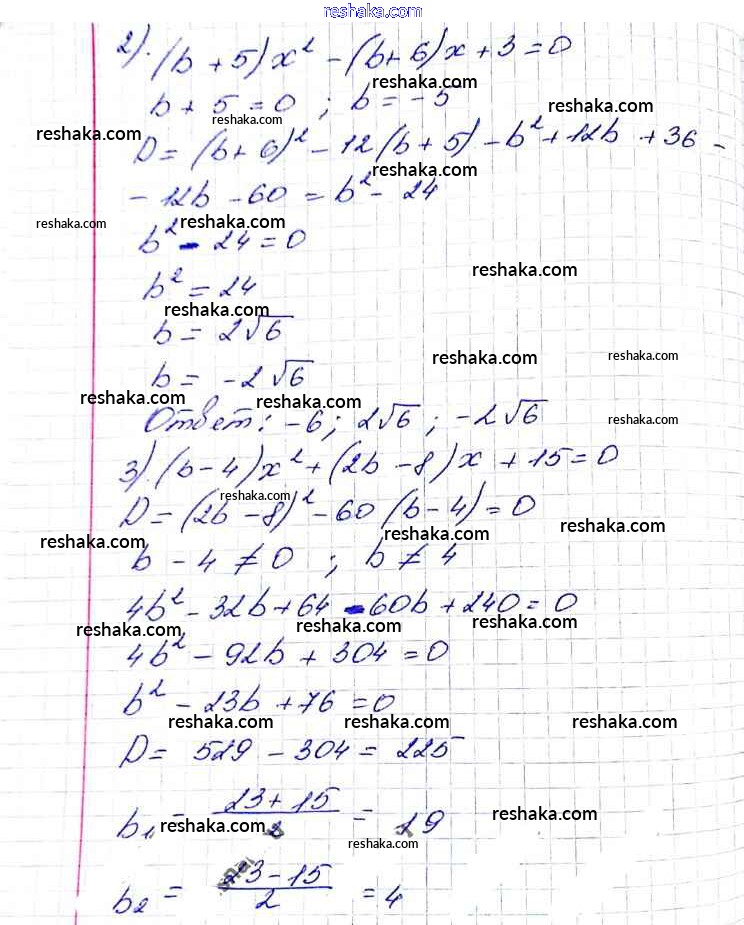 reshaka.com
2). (b + 5)x² - (b + 6)x + 3 = 0
reshaka.com
b + 5 = 0 ; b = - 5
reshaka.com reshaka.com reshaka.com
D = (b + 6)² - 12(b + 5) - b² + 12b + 36 -
reshaka.com
- 12b - 60 = b² - 24
reshaka.com reshaka.com
b² - 24 = 0
reshaka.com
b² = 24
reshaka.com
b = 2√6
reshaka.com reshaka.com
b = - 2√6
reshaka.com reshaka.com
Ответ: - 6; 2√6; - 2√6
reshaka.com
3). (b - 4)x² + (2b - 8)x + 15 = 0
reshaka.com
D = (2b - 8)² - 60(b - 4) = 0
reshaka.com reshaka.com reshaka.com
b - 4 ≠ 0 ; b ≠ 4
4b² - 32b + 64 - 60b + 240 = 0
reshaka.com reshaka.com reshaka.com
4b² - 92b + 304 = 0
b² - 23b + 76 = 0
reshaka.com reshaka.com reshaka.com
D = 529 - 304 = 225
b₁ = (23 + 15)/2 = 19
reshaka.com reshaka.com reshaka.com
b₂ = (23 - 15)/2 = 4